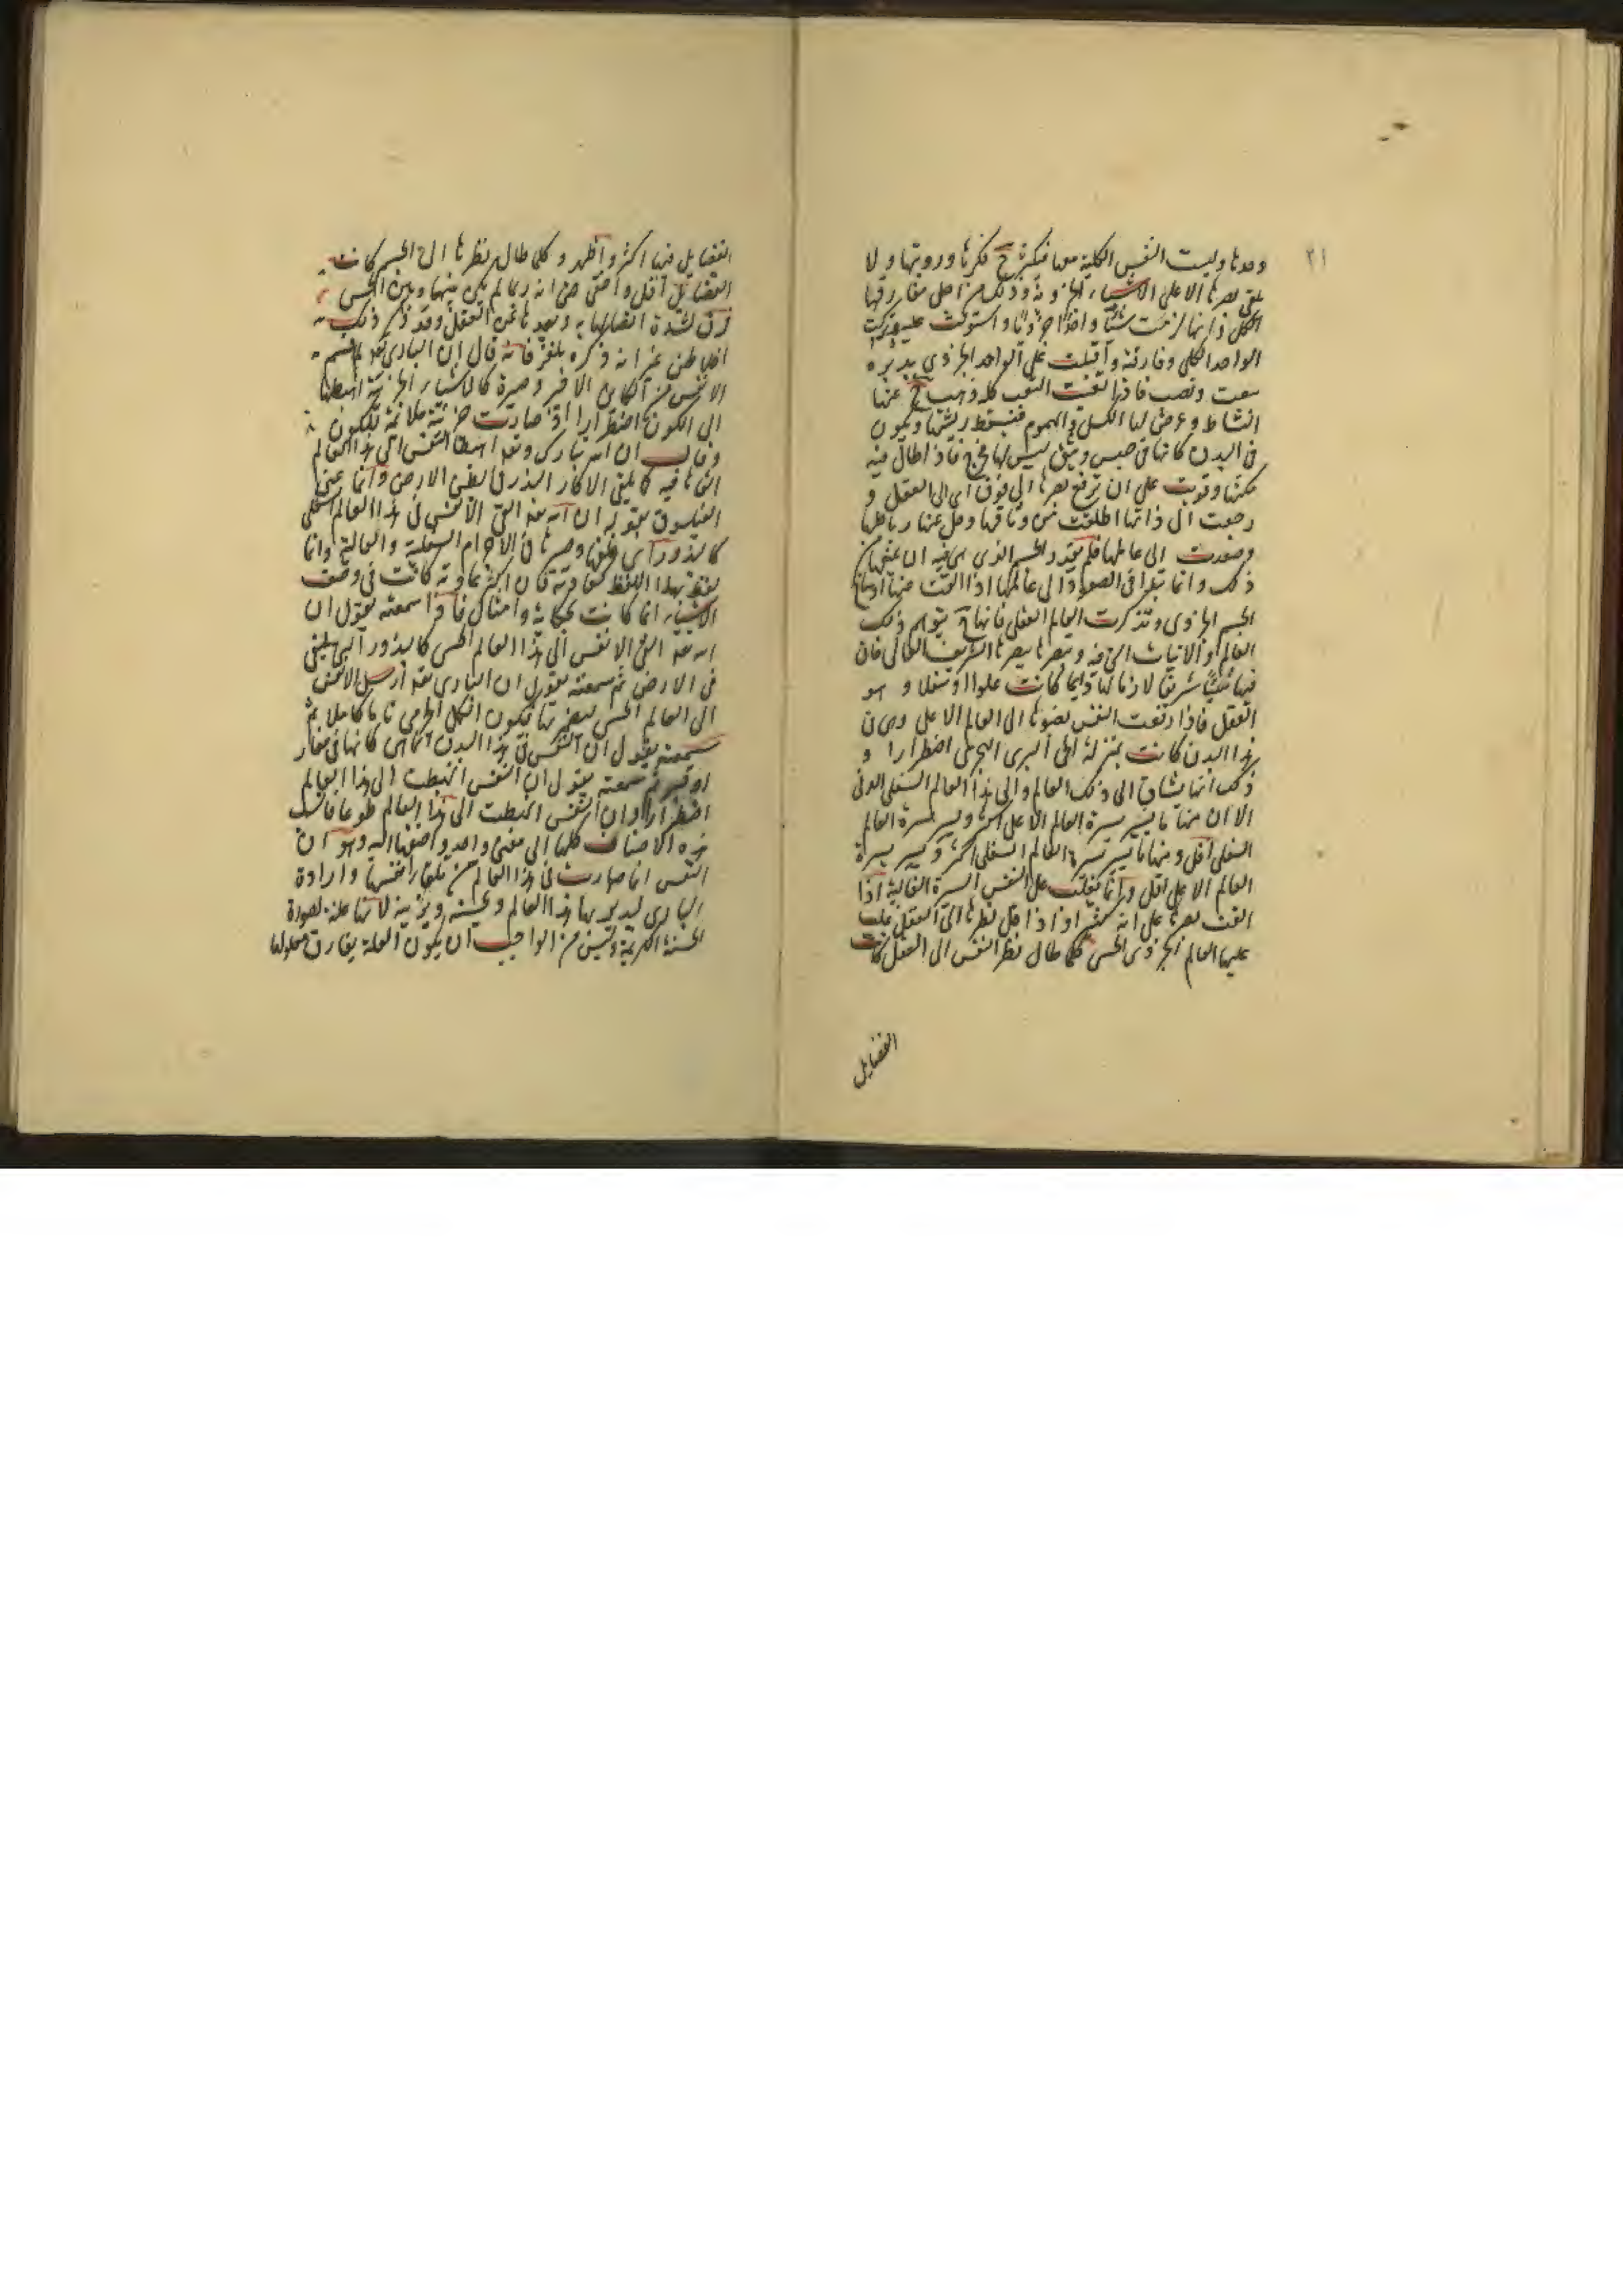 ٢١
وحدها وليست النفس الكلية معها فيكثر ح فكرها ورويتها ولا
يلقى بصرها الا على الاشياء الجزوية وذلك من اجل مفارقتها
الكل ذاتها لزمت شيئا واحدا جزويا واستولت عليه وتركت
الواحد الكلى وفارقته واقبلت على الواحد الجزوى بتدبيره
بتعب ونصب فاذا تعبت التعب كله ذهب ح عنها
النشاط وعرض لها الكسل والهموم فيسقط ريشها وتكون
فى البدن كانها فى حبس وثيق ليس لها مخرج فاذا طال فيه
مكثها وقويت على ان ترفع بصرها الى فوق اى الى العقل و
رجعت الى ذاتها اطلقت من وثاقها وحل عنها رباطها
وصعدت الى عالمها فلم يقدر الجسم الذى هى فيه ان يمنعها من
ذلك وانما تبدأ فى الصعود الى عالمها اذا القت عنها اوساخ
الجسم الجزوى وتذكرت العالم العقلى فانها ح تتوهم ذلك
العالم والانيات التى فيه وتبصرها ببصرها الشريف العالى فان
فيها شيئا شريفا لازما لها دايما كانت علوا او سفلا و هو
العقل فاذا رفعت النفس بصرها الى العالم الاعلى وهى فى
هذا البدن كانت بمنزلة الحى البرى البحرى اضطرارا و
ذلك انها تشتاق الى ذلك العالم والى هذا العالم السفلى الدنى
الا ان منها ما يسير بسيرة العالم الاعلى اكثر ويسير بسيرة العالم
السفلى اقل ومنها ما يسير بسيرة العالم السفلى اكثر ويسير بسيرة
العالم الاعلى اقل وانما يغلب على النفس السيرة الغالبة اذا
القت بصرها على انه كثير او اذا قل نظرها الى العقل غلب
عليها العالم الجزوى الحسى فكلما طال نظر النفس الى العقل كانت
الفضايل
الفضايل فيها اكثر واظهر وكلما طال نظرها الى الجسم كانت
الفضايل اقل واخفى حتى انه ربما لم يكن بينها وبين الحس
فرق لشدة اتصالها به وبعدها عن العقل وقد ذكر ذلك
افلاطن غير انه ذكره بلغز فانه قال ان البارى تعالى لما قسم
الانفس من الكاس الاخير وصيره كالاشياء الجزئية اهبطها
الى الكون اضطرارا اذ صارت جزئية ملائمة للكون
وقال ان الله تبارك وتعالى اهبط النفس الى هذا العالم
القاها فيه كما يلقى الاكار البذر فى بطن الارض وانما عنى
الفيلسوف بقوله ان الله تعالى القى الانفس فى هذا العالم السفلى
كالبذور اى خلقها وصيرها فى الاجرام السفلية والعالية وانما
لفظ بهذا اللفظ لعادته فان اكثر عادته كانت فى وصف
الاشياء انما كانت بحكاية وامثال فاذا سمعته يقول ان
الله تعالى القى الانفس الى هذا العالم الحسى كالبذور التى تلقى
فى الارض ثم سمعته يقول ان البارى تعالى ارسل الانفس
الى العالم الحسى ليعمر بها فيكون الكل الجرمى تاما كاملا ثم
سمعته يقول ان النفس فى هذا البدن انما هى كانها فى مغار
او قبر ثم سمعته يقول ان النفس انهبطت الى هذا العالم
اضطرارا وان النفس انهبطت الى هذا العالم طوعا فانسب
هذه الاصناف كلها الى معنى واحد واضفها اليه وهو ان
النفس انما صارت فى هذا العالم من تلقاء نفسها وارادة
البارى ليدبر بها هذا العالم ويحسنه ويزينه لانها علة لصورة
الحسنة الكريمة وليس من الواجب ان يكون العلة يفارق معلولها